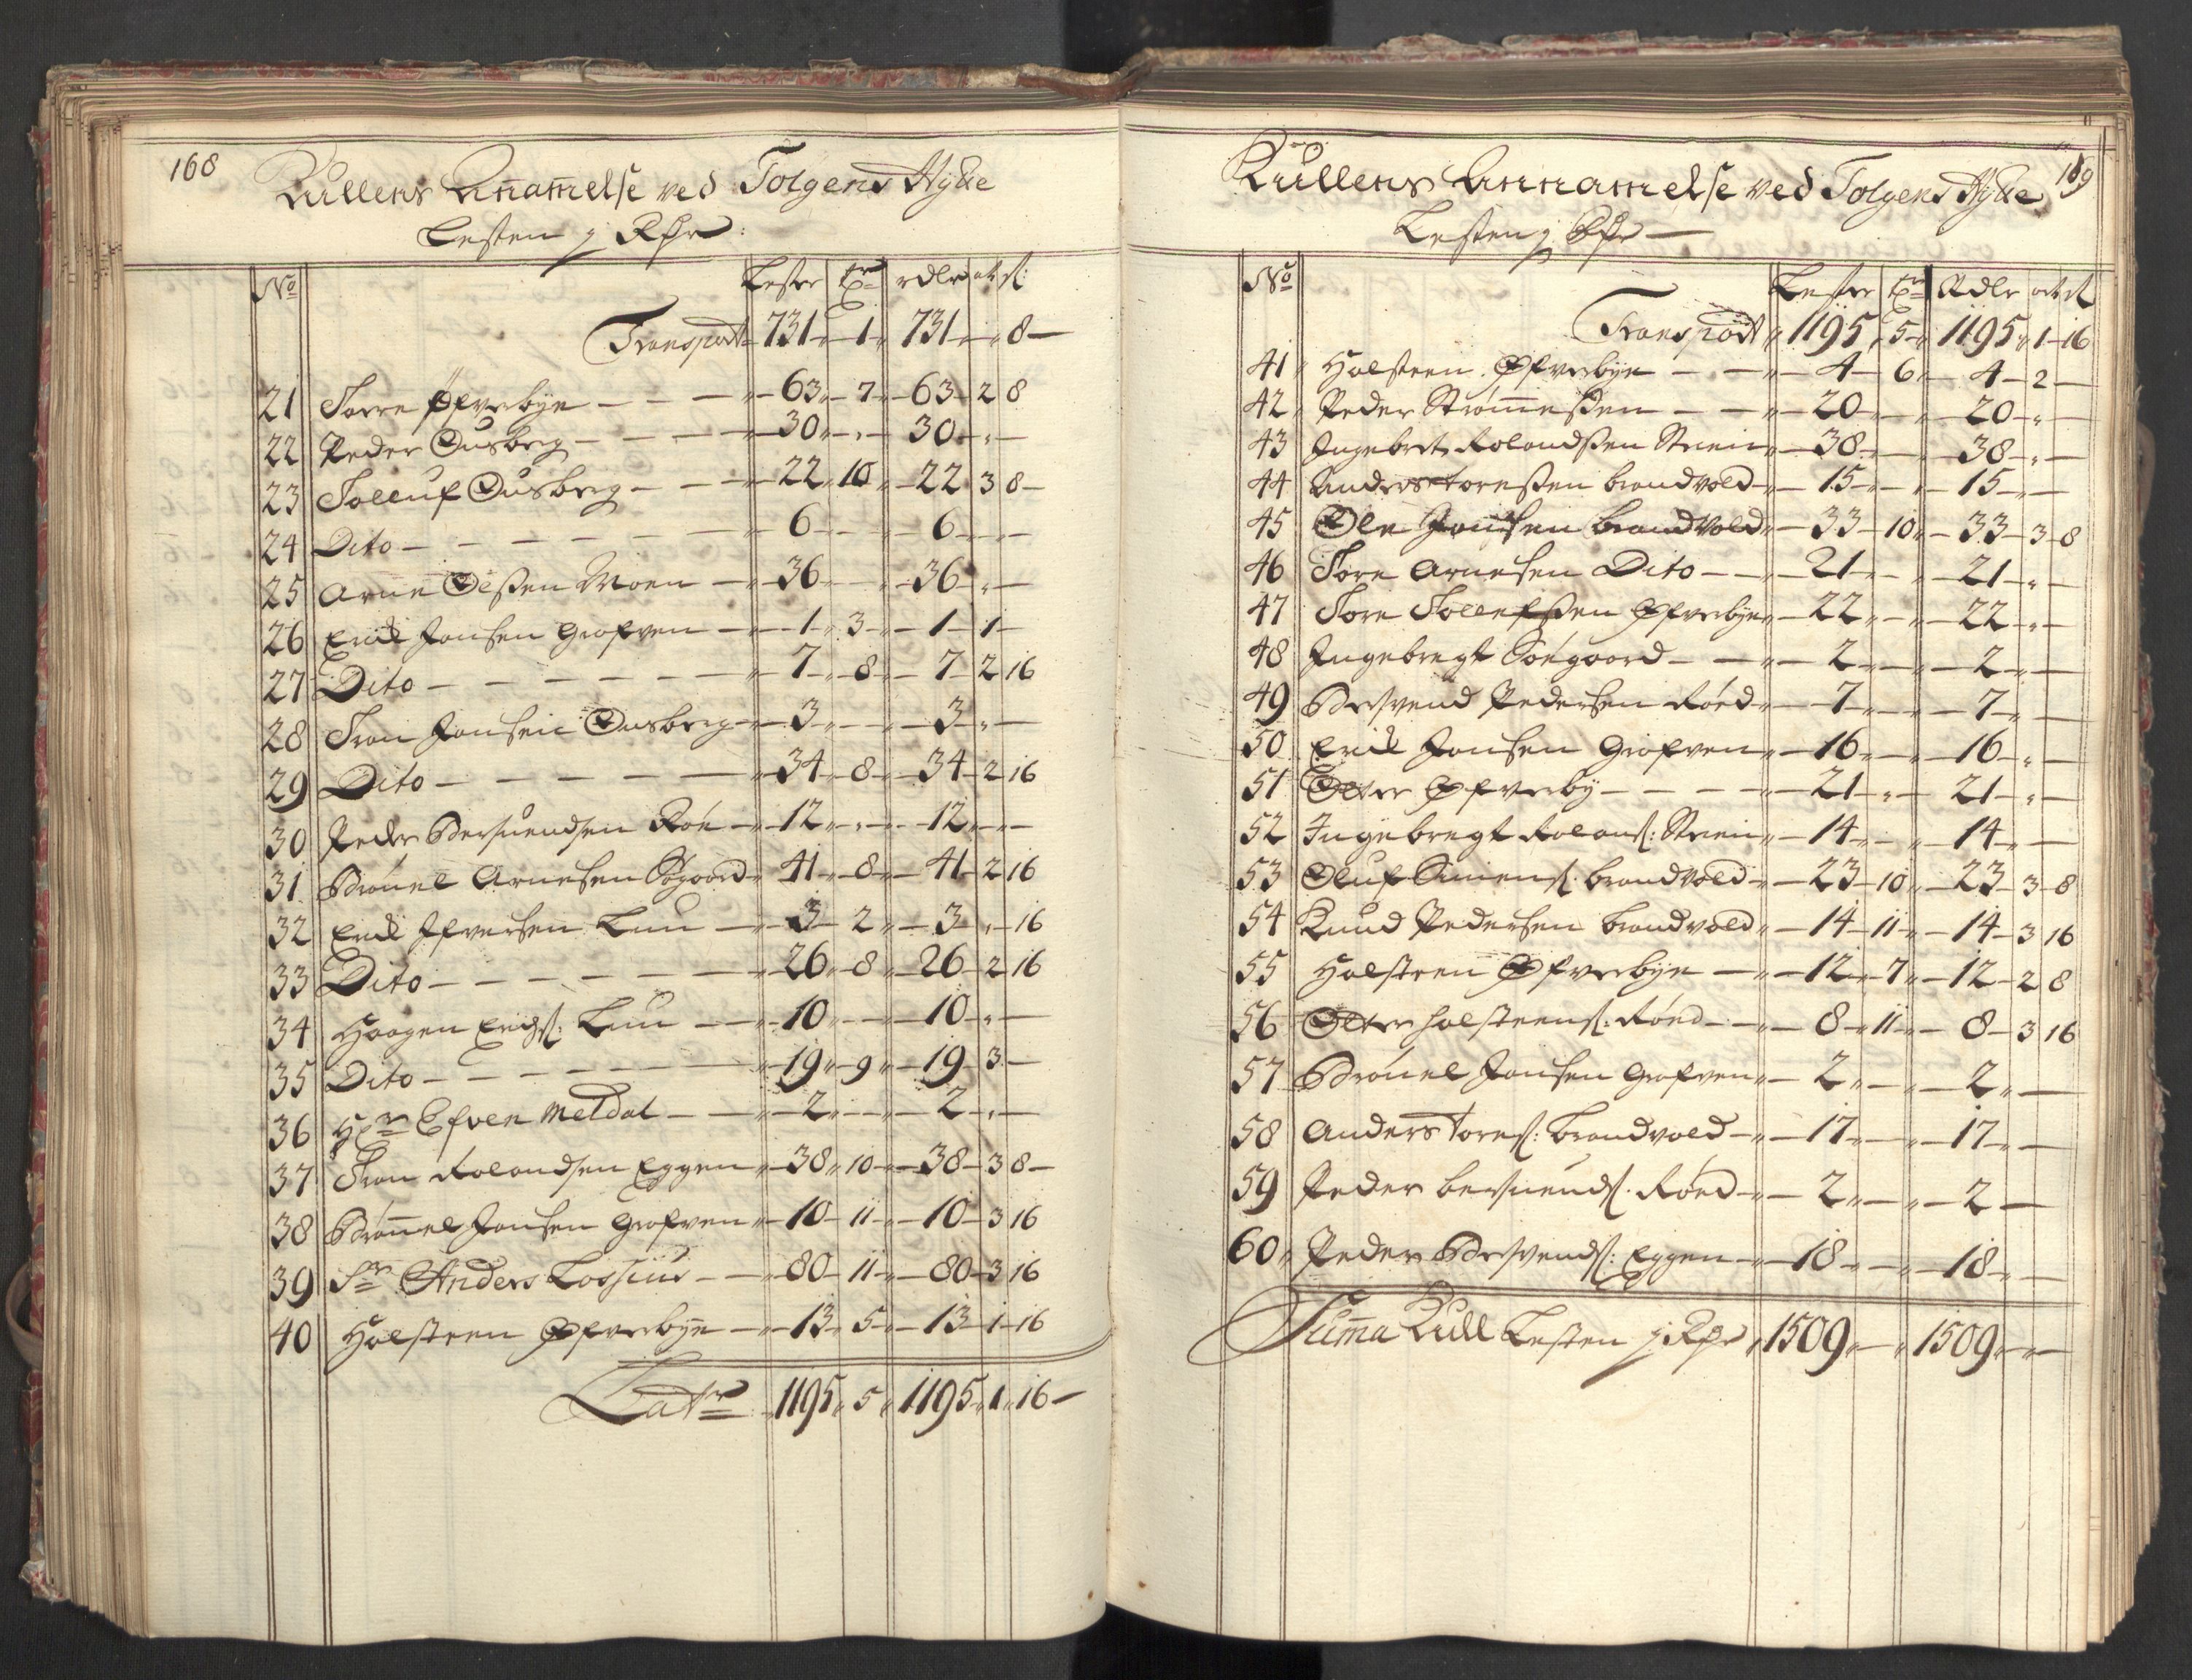 168
Kullens Annammelse ved Tolgens Hytte
Lesten j Rdr:
No Lester Tr rdlr ort s:
Transport 731 1 731 8
21 Torre Øfverbye 63 7 63 2 8
22 Peder Ousberg 30 30
23 Tolluf Ousberg 22 10 22 3 8
24 Dito 6 6
25 Arne Olssen Moen 36 36
26 Erik Jonsen Grofven 1 3 1 1
27 Dito 7 8 7 2 16
28 Tron Jonsen Ousberg 3 3
29 Dito 34 8 34 2 16
30 Peder Bersuendsen Roe 12 12
31 Brønel Arnesen Søgaard 41 8 41 2 16
32 Erik Ifversen Luu 3 2 3 16
33 Dito 26 8 26 2 16
34 Haagen Erichs: Luu 10 10
35 Dito 19 9 19 3
36 Hr Efven Meldal 2 2
37 Tron Rolandsen Eggen 38 10 38 3 8
38 Brønnel Jonsen Grofven 10 11 10 3 16
39 Sr Anders Lossius 80 11 80 3 16
40 Holsteen Øfverbye 13 5 13 1 16
Latr 1195 5 1195 1 16
169
Kullens Annammelse ved Tolgens Hytte
Lesten j Rdr
No Lester Tr Rdlr ort s
Transport 1195 5 1195 1 16
41 Holsteen Øfverbye 4 6 4 2
42 Peder Strømmessen 20 20
43 Ingebret Rolandssen Strein 38 38
44 Anders Toressen Brandvold 15 15
45 Ole Jonsen Brandvold 33 10 33 3 8
46 Tore Arnesen Dito 21 21
47 Tore Tollefssen Øfverbye 22 22
48 Ingebregt Søegaard 2 2
49 Bersvend Pedersen Røed 7 7
50 Erik Jonsen Grofven 16 16
51 Otter Øfverby 21 21
52 Ingebregt Rolands: Strein 14 14
53 Oluf Simens: Brandvold 23 10 23 3 8
54 Knud Pedersen Brandvold 14 11 14 3 16
55 Holsteen Øfverbye 12 7 12 2 8
56 Otter Holsteens: Røed 8 11 8 3 16
57 Brønel Jonsen Grofven 2 2
58 Anders Tores: Brandvold 17 17
59 Peder Bersuends: Røed 2 2
60 Peder Bersvends: Eggen 18 18
Summa Kull Lesten j Rdr 1509 1509